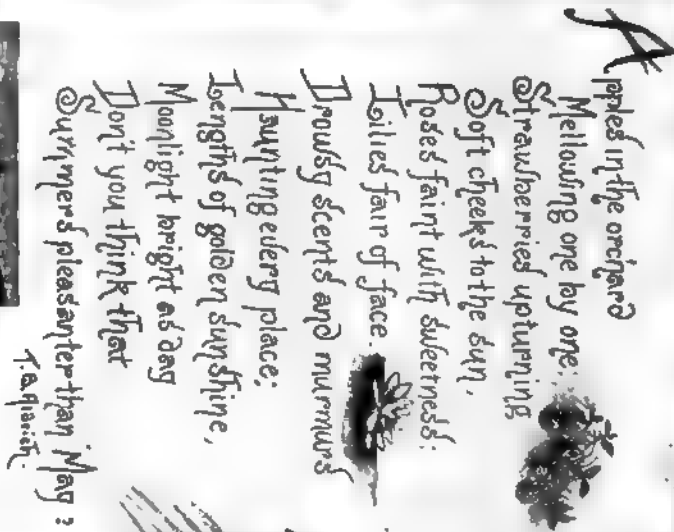 Apples in the orchard
Mellowing one by one;
Strawberries upturning
Soft cheeks to the sun,
Roses faint with sweetness;
Lilies fair of face.
Drowsy scents and murmurs
Haunting every place;
Lengths of golden sunshine,
Moonlight bright as day
Don't you think that
Summers pleasanter than May?
T.B. Aldrich.